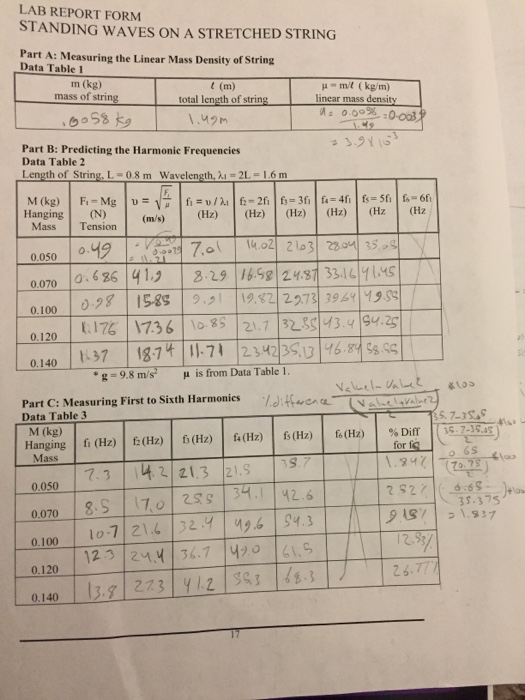 LAB REPORT FORM
STANDING WAVES ON A STRETCHED STRING
Part A: Measuring the Linear Mass Density of String
Data Table 1
m (kg) mass of string
ℓ (m) total length of string
μ = m/ℓ ( kg/m) linear mass density
.0058 kg 1.49m
= 3.9 X 10⁻³
Part B: Predicting the Harmonic Frequencies
Data Table 2
Length of String, L = 0.8 m Wavelength, λ₁ = 2L = 1.6 m
M (kg) Hanging Mass
F₁ = Mg (N) Tension
υ = √F₁/μ (m/s)
f₁ = υ / λ₁ (Hz)
f₂ = 2f₁ (Hz)
f₃ = 3f₁ (Hz)
f₄ = 4f₁ (Hz)
f₅ = 5f₁ (Hz
f₆ = 6f₁ (Hz
0.050 0.49 = 11.21 7.01 14.02 2103 28.04 35.05
0.070 0.686 41.9 8.29 16.58 24.87 33.16 41.45
0.100 0.98 15.85 9.91 19.82 29.73 39.64 49.55
0.120 1.176 17.36 10.85 21.7 32.55 43.4 54.25
0.140 1.37 18.74 11.71 23.42 35.13 46.84 58.55
* g = 9.8 m/s² μ is from Data Table 1.
Part C: Measuring First to Sixth Harmonics
% difference
Data Table 3
M (kg) Hanging Mass
f₁ (Hz)
f₂ (Hz)
f₃ (Hz)
f₄ (Hz)
f₅ (Hz)
f₆ (Hz)
% Diff for
0.050 7.3 14.2 21.3 21.5 35.7 1.84%
0.070 8.5 17.0 25.5 34.1 42.6 2.52%
0.100 10.7 21.6 32.4 49.6 54.3
0.120 12.3 24.4 36.7 49.0 61.5
0.140 13.8 27.3 41.2 68.3
0.65
(70.75)
35.375
= 1.837
17